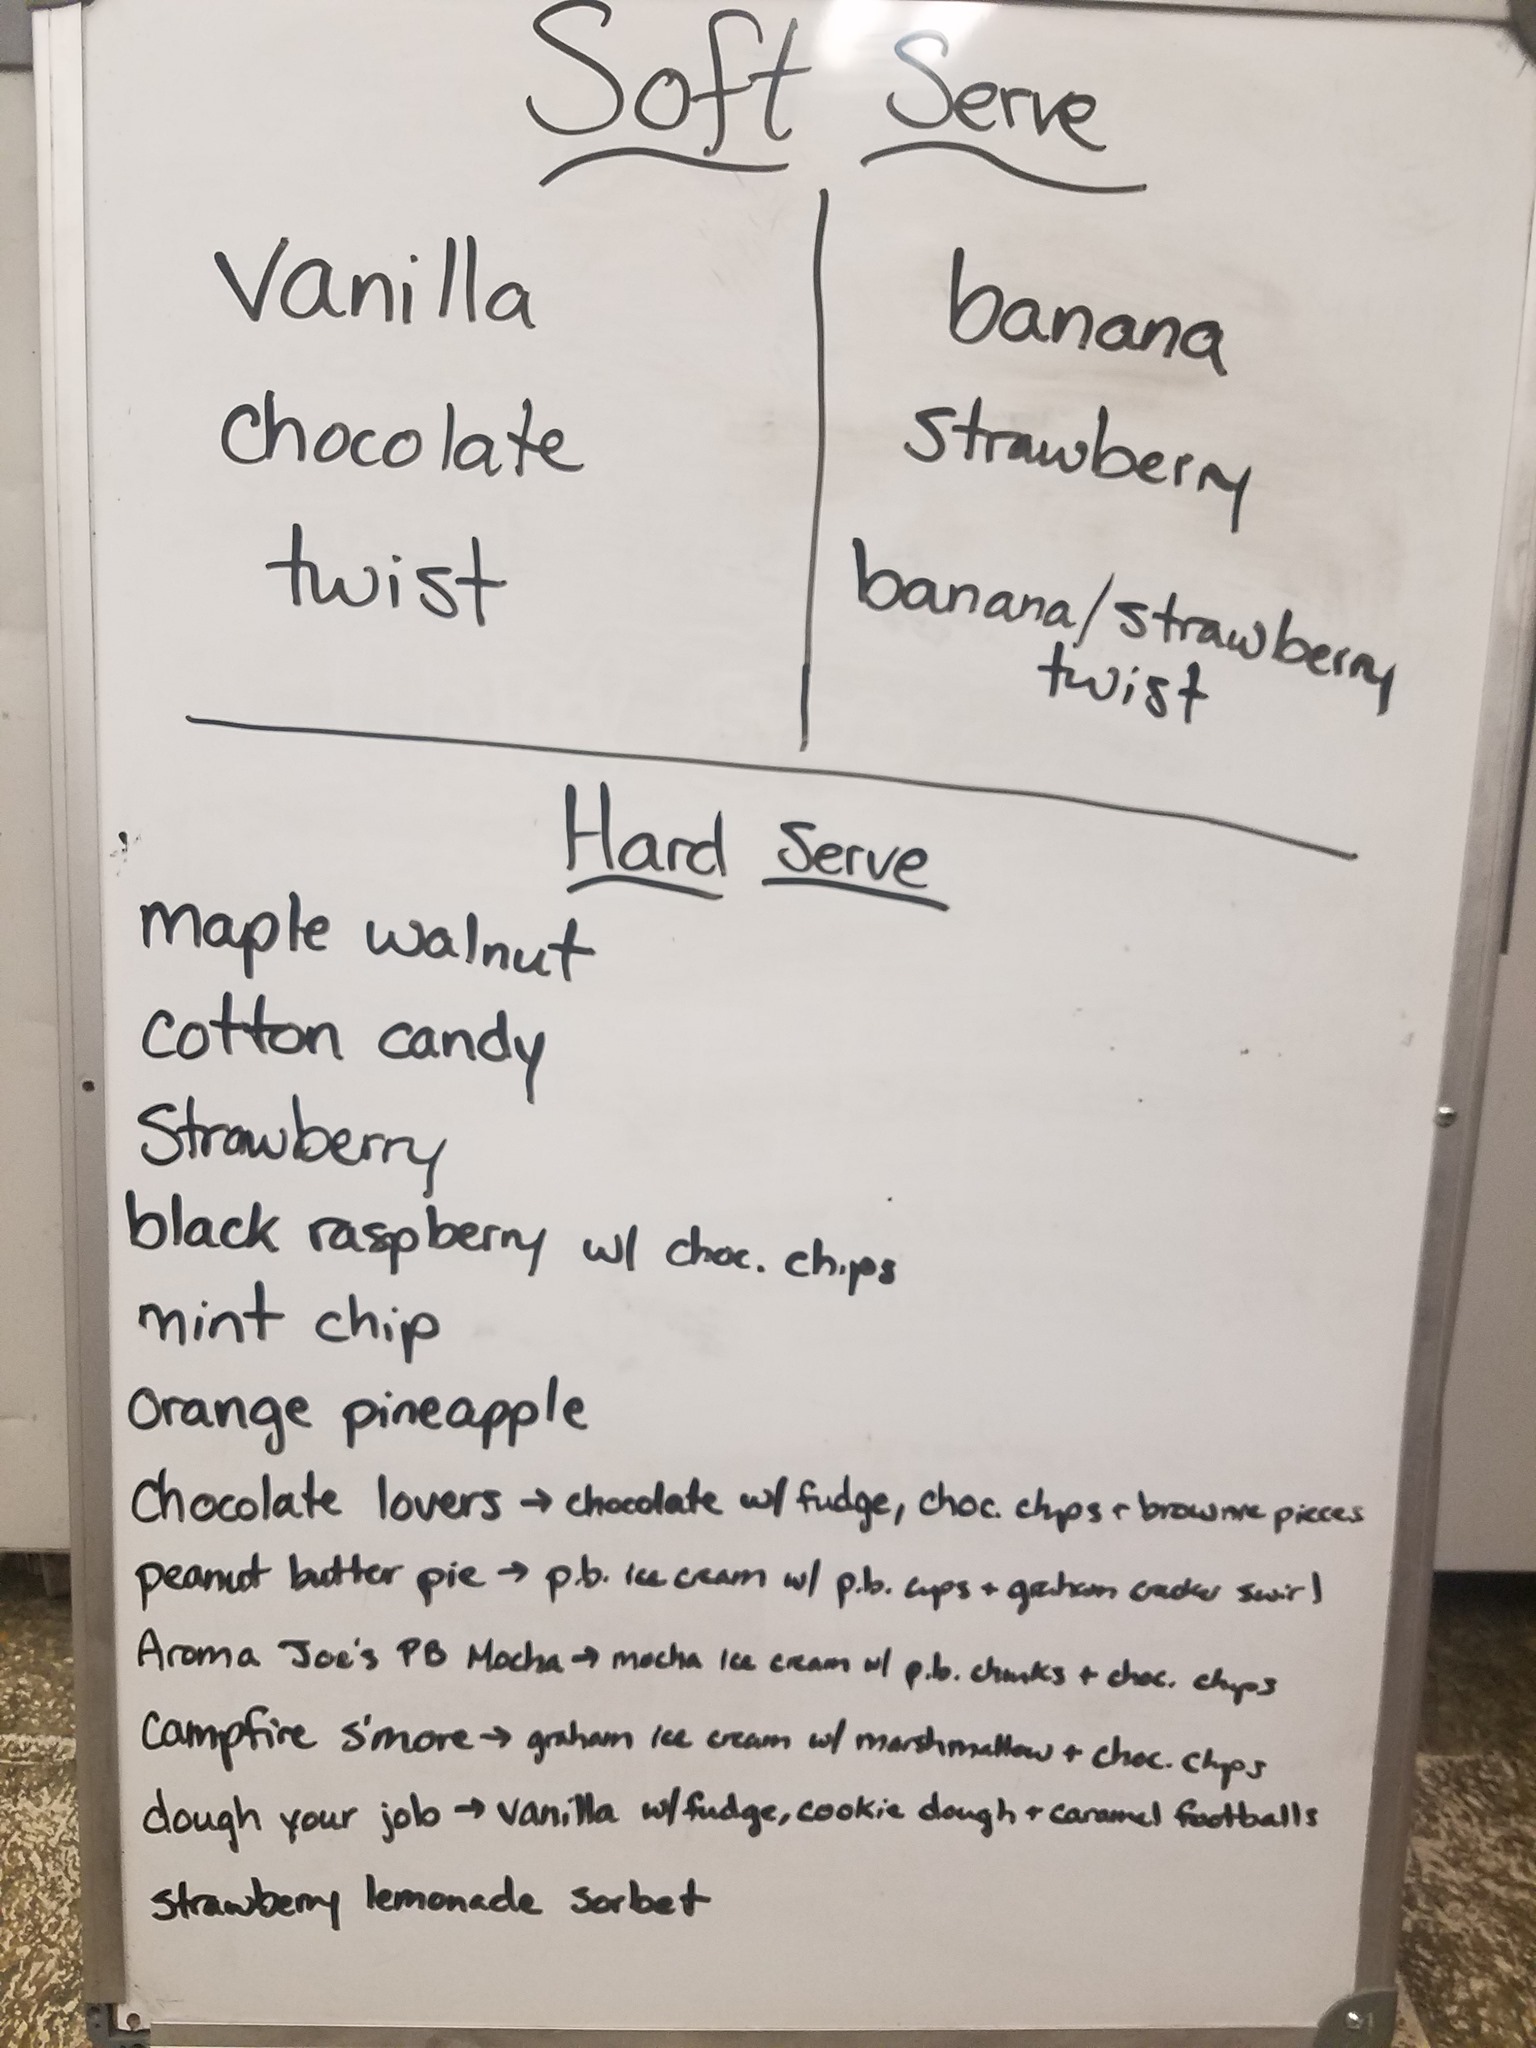 Soft Serve
Vanilla
chocolate
twist
banana
strawberry
banana/strawberry
twist
Hard Serve
maple walnut
cotton candy
Strawberry
black raspberry w/ choc. chips
mint chip
orange pineapple
Chocolate lovers → chocolate w/ fudge, choc. chips + brownie pieces
peanut butter pie → p.b. ice cream w/ p.b. cups + graham cracker swirl
Aroma Joe's PB Mocha → mocha ice cream w/ p.b. chunks + choc. chips
Campfire s'more → graham ice cream w/ marshmallow + choc. chips
dough your job → vanilla w/ fudge, cookie dough + caramel footballs
strawberry lemonade sorbet